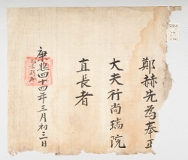 鄭赫先為奉正
大夫行尚瑞院
直長者
康熙四十四年三月初三日